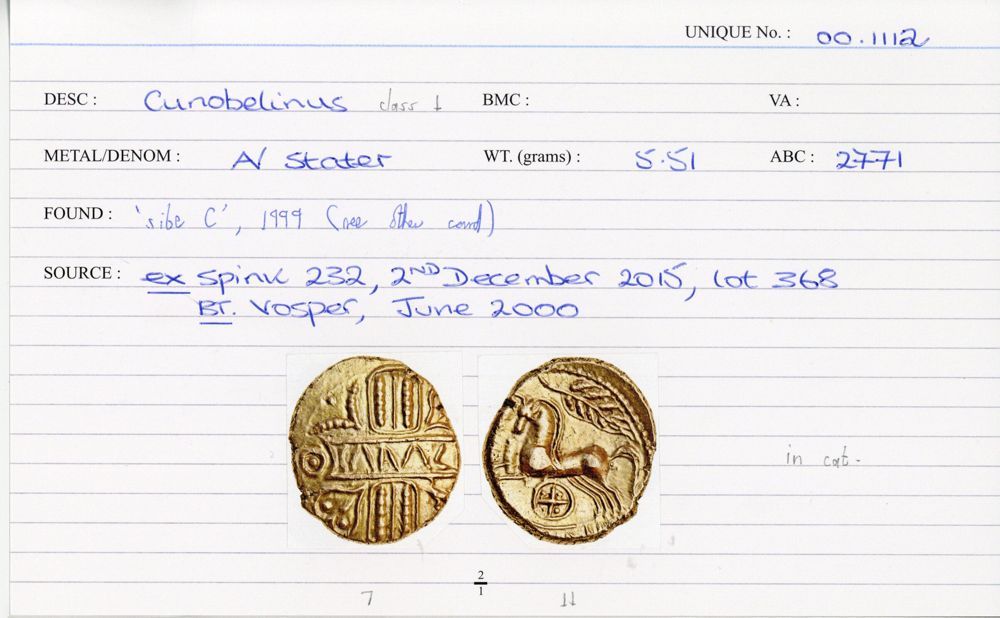 UNIQUE No. : 00.1112
DESC : Cunobelinus class 1 BMC : VA :
METAL/DENOM : A/ Stater WT. (grams) : 5.51 ABC : 2771
FOUND : 'site C', 1999 (see other card)
SOURCE : ex Spink 232, 2ND December 2015, lot 368
BT. Vosper, June 2000
in cat.
2
1
7 11